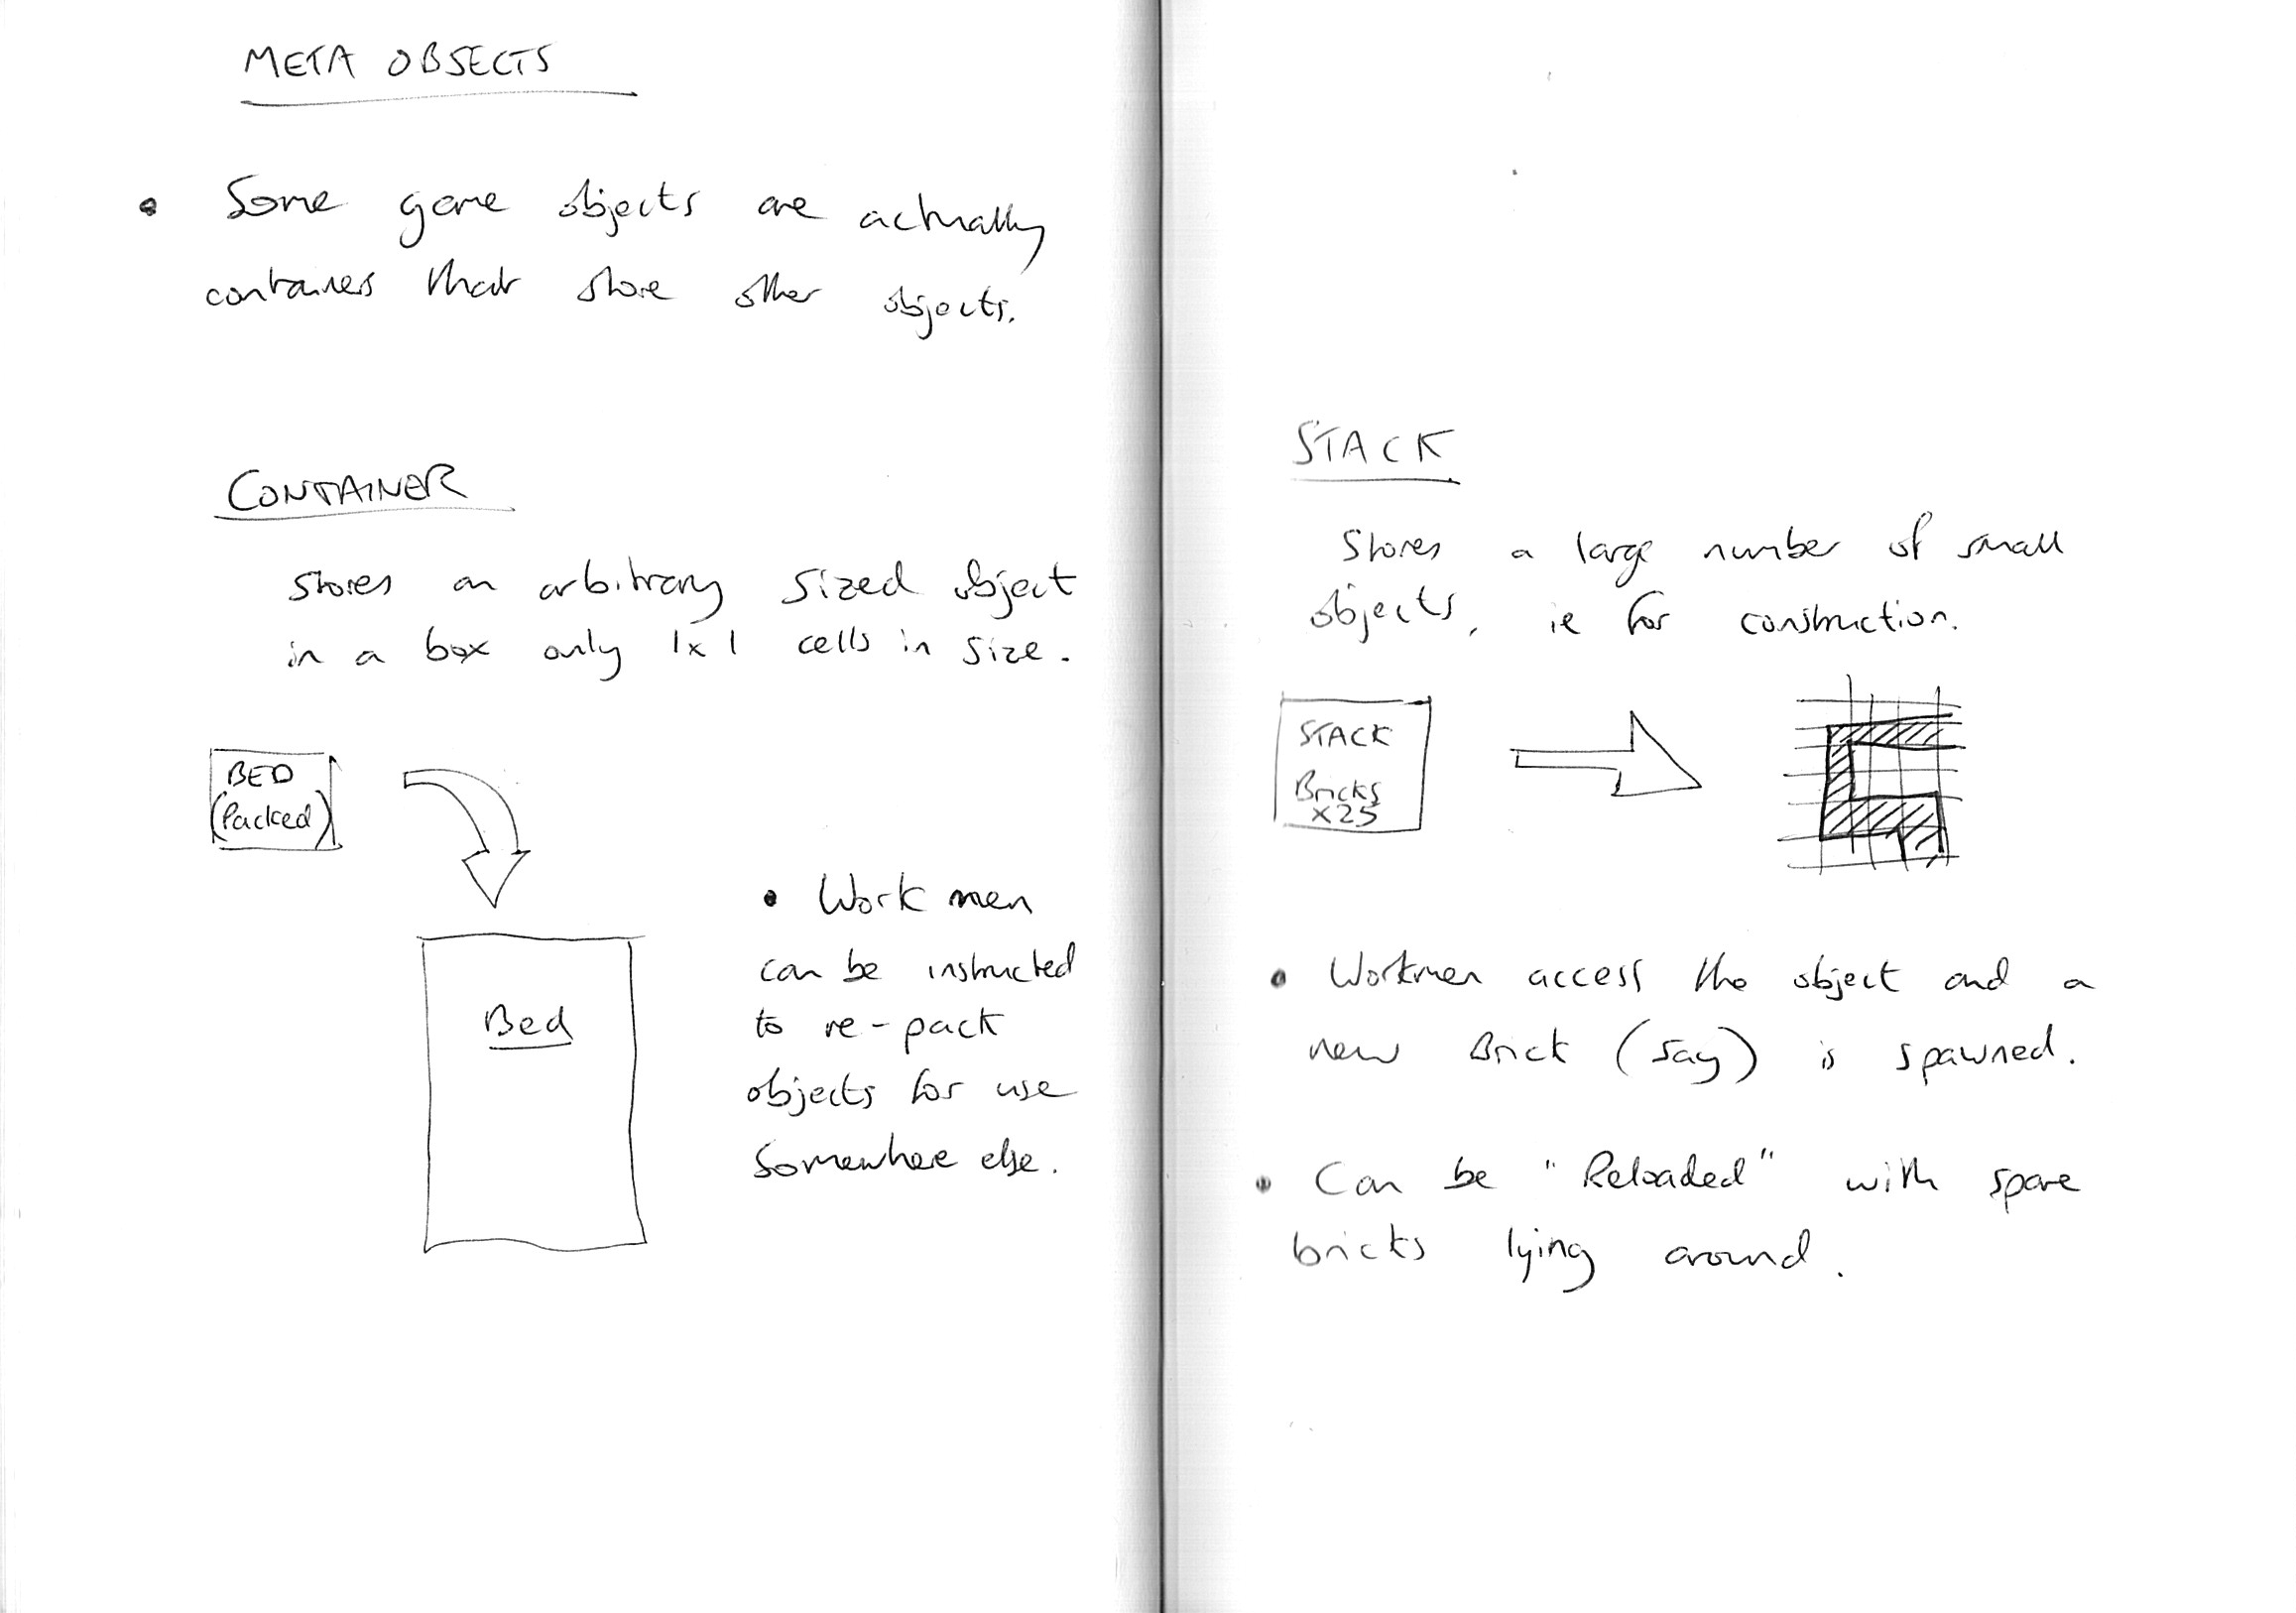 META OBJECTS
• Some game objects are actually
containers that store other objects.
CONTAINER
Stores an arbitrary sized object
in a box only 1x1 cells in size.
BED
(Packed)
Bed
• Work men
can be instructed
to re-pack
objects for use
somewhere else.
STACK
Stores a large number of small
objects, ie for construction.
STACK
Bricks
x25
• Workmen access the object and a
new Brick (say) is spawned.
• Can be "Reloaded" with spare
bricks lying around.